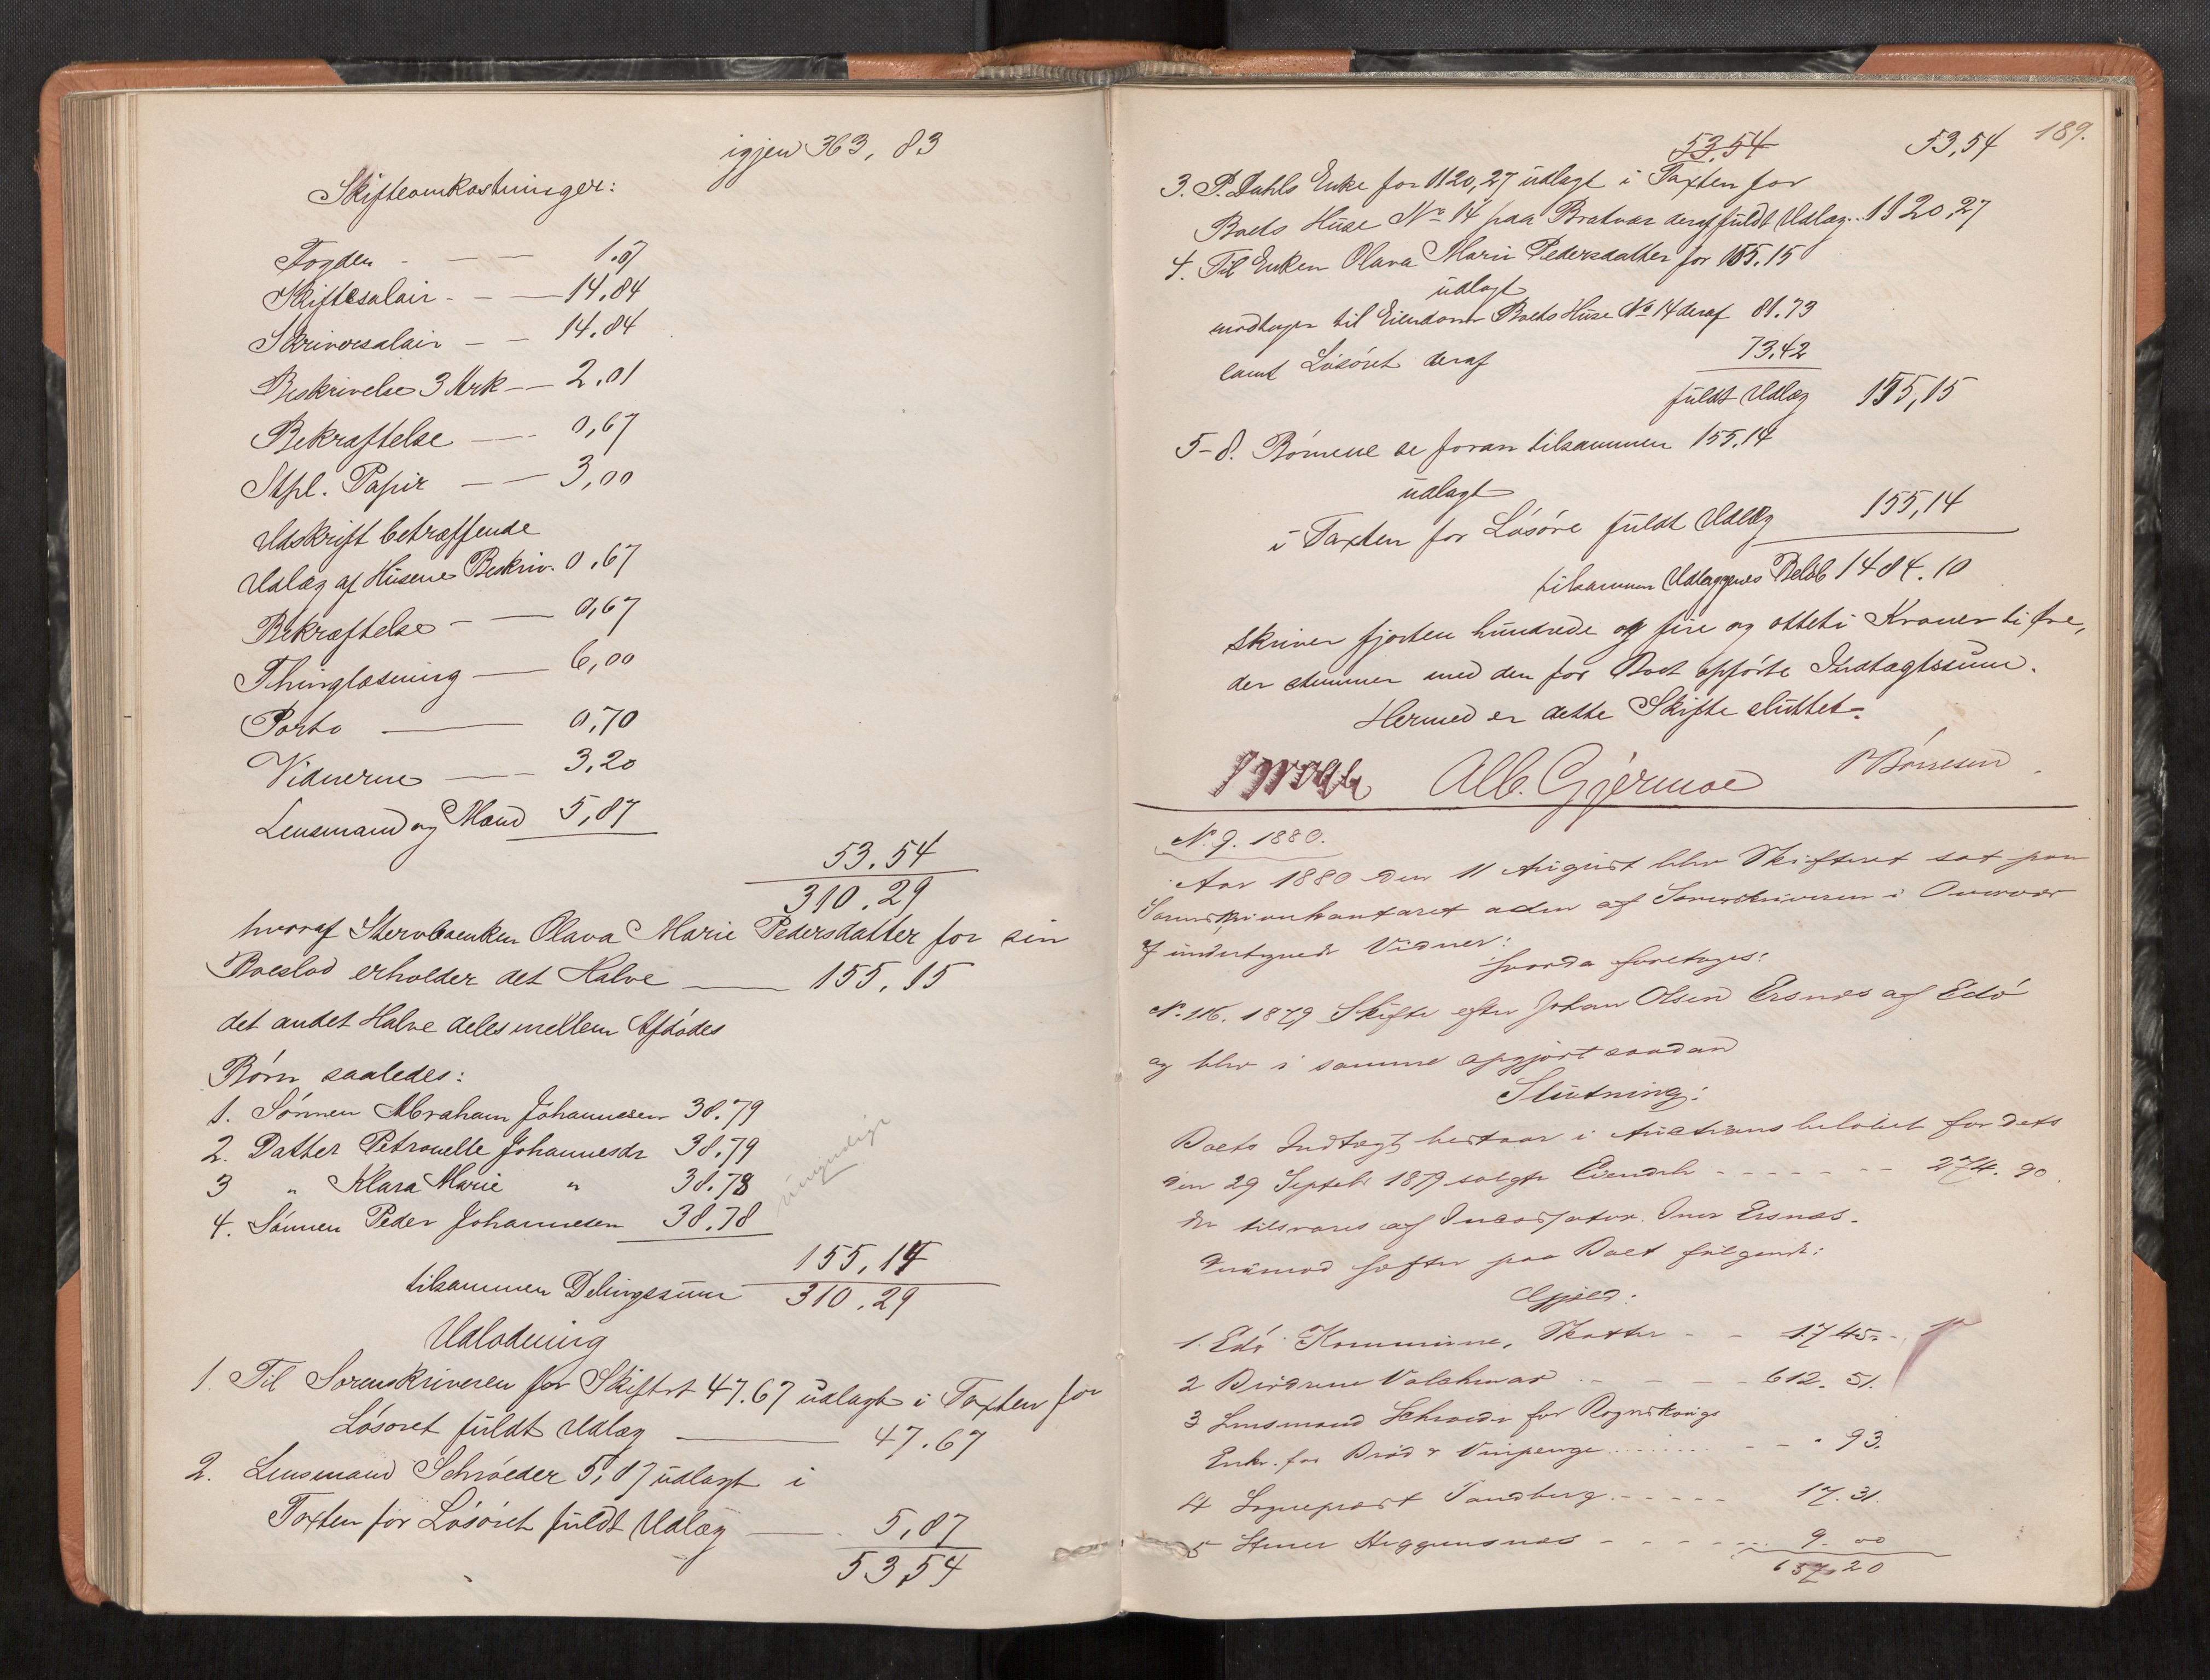 igjen 363, 83
Skifteomkostninger:
Fogden - — — 1.07
Skiftesalair - - — 14.84
Skriversalair — — 14.84
Beskrivelse 3 Ark — — 2.01
Bekræftelse — — 0,67
Stpl. Papir — — 3,00
Udskrift betræffende
Udlæg af Husene Beskriv. 0.67
Bekræftelse - — 0,67
Thinglæsning — 6,00
Porto — 0,70
Vidnerne — — 3,20
Lensmand og Mænd 5,87
53.54
310.29
hvoraf Stervboenken Olava Marie Pedersdatter for sin
Boeslod erholder det Halve — 155.15
det andet Halve deles mellem Afdødes
Børn saaledes:
1. Sønnen Abraham Johannesen 38.79
2. Datter Petronelle Johannesdr 38.79
3 " Klara Marie " 38.78
4. Sønnen Peder Johannesen 38.78
umyndige
155,14
tilsammen Delingssum 310.29
Udlodning
1. Til Sorenskriveren for Skiftet 47.67 udlagt i Taxten for
Løsøret fuldt Udlæg — 47.67
2. Lensmand Schrøeder 5,87 udlagt i
Taxten for Løsøret fuldt Udlæg — 5,87
53,54
189.
53,54 53,54
3. P. Dahls Enke for 1120,27 udlagt i Taxten for
Boets Huse No 14 paa Bratvær deraf fuldt Udlæg.. 1120,27
4. Til Enken Olava Marie Pedersdatter for 155.15
udlagt
modtager til Eiendom Boets Huse No 14 deraf 81.73
samt Løsøret deraf 73.42
fuldt Udlæg 155,15
5-8. Børnene se foran tilsammen 155.14
udlagt
i Taxten for Løsøre fuldt Udlæg 155,14
tilsammen Udlæggenes Beløb 1484.10
skriver fjorten hundrede og fire og otteti Kroner ti Øre,
der stemmer med den for Boet opførte Indtægtssum.
Hermed er dette Skifte sluttet.
Alb. Gjermoe
No 9. 1880.
Aar 1880 den 11 August blev Skifteret sat paa
Sorenskriverkontoret af Sorenskriveren i Overvær
af undertegnede Vidner:
hvorda foretoges:
No 116. 1879 Skifte efter Johan Olsen Ersnes af Edø
og blev i samme opgjort saadan
Slutning:
Boets Indtægt bestaar i Auctionsbeløbet for dets
den 29 Septebr 1879 solgte Eiendele - - - - - - - 274.90.
der tilsvares af Incassator Iver Ersnæs.
Derimod hefter paa Boet følgende:
Gjæld:
1. Edø Kommune, Skatter - - 17 45 - -
2 Brødrene Volckmar - - - - 612. 51.
3 Lensmand Schrøder for Regnskovigs
Enke for Brød & Vinpenge ......... - - - 93.
4 Sogneprest Sandberg - - - - - 17.31.
5 Stener Heggemsnæs - - - - - - 9. 00
657.20